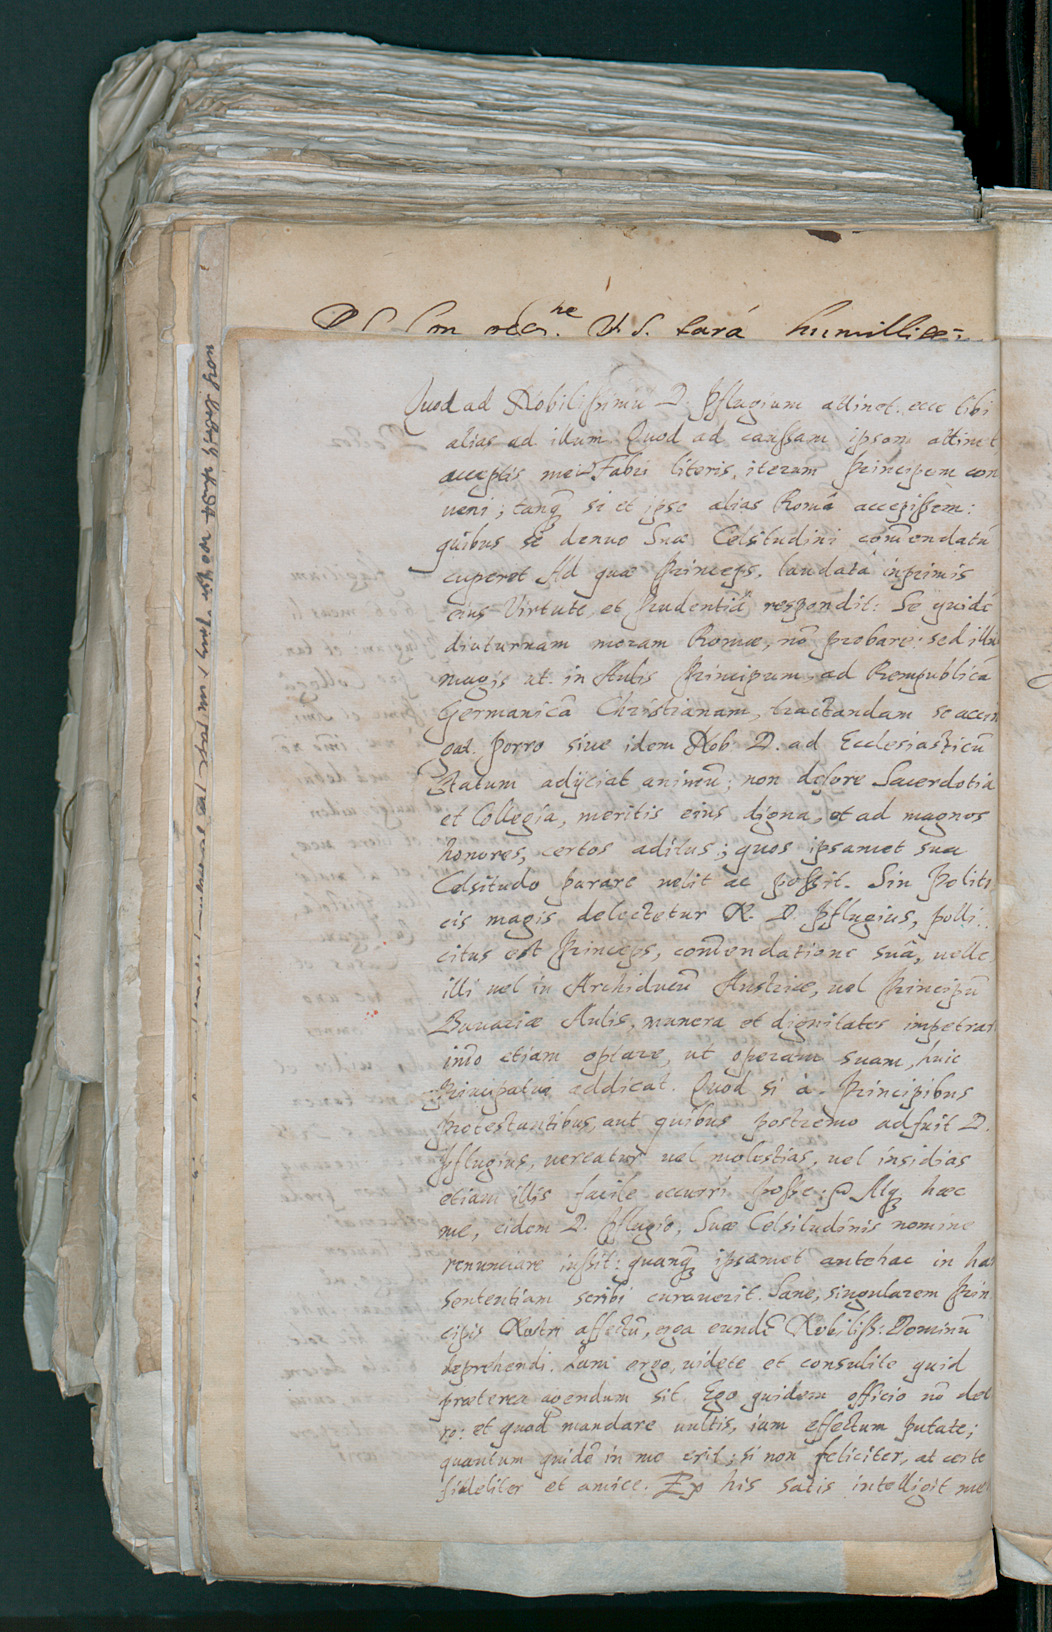 humillis=
Quod ad Nobilissimū D. Pflugium attinet, ecce tibi
alias ad illum. Quod ad caussam ipsam attinet
acceptis mei Fabri literis, iterum Principem con
ueni; tanq̃ si et ipse alias Româ accepissem:
quibus se denuo Suæ Celsitudini com̄endatū
cuperet. Ad quæ Princeps, laudatâ inprimis
eius Virtute, et Prudentiâ respondit: Se quidē
diuturnam moram Romæ, nō probare: sed illū
magis ut in Aulis Principum, ad Rempublicā
Germanicā Christianam, tractandam se accin
gat. Porro siue idem Nob. D. ad Ecclesiasticū
Statum adijciat animū; non defore Sacerdotia
et Collegia, meritis eius digna, et ad magnos
honores, certos aditus; quos ipsamet sua
Celsitudo parare uelit ac possit. Sin Politi
cis magis delectetur N. D. Pflugius, polli
citus est Princeps, com̄endatione suâ, uelle
illi uel in Archiducū Austriæ, uel Principū
Bauariæ Aulis, munera et dignitates impetrar
im̄o etiam optare, ut operam suam, huic
Principatui addicat. Quod si à Principibus
Protestantibus, aut quibus postremo adfuit D.
Pflugius, uereatur uel molestias, uel insidias
etiam illis facile occurri posse; Atq̃ hæc
me, eidem D. Pflugio, Suæ Celsitudinis nomine
renunciare iussit: quanq̃ ipsamet antehac in han
sententiam scribi curauerit. Sane, singularem Prin
cipis Nostri affectū, erga eundē Nobiliss: Dominū
deprehendi. Iam ergo, uidete et consulite quid
præterea agendum sit. Ego quidem officio nō dee
ro: et quod mandare uultis, iam effectum putate;
quantum quidē in me erit; si non feliciter, at certe
fideliter et amice. Ex his satis intelligit me